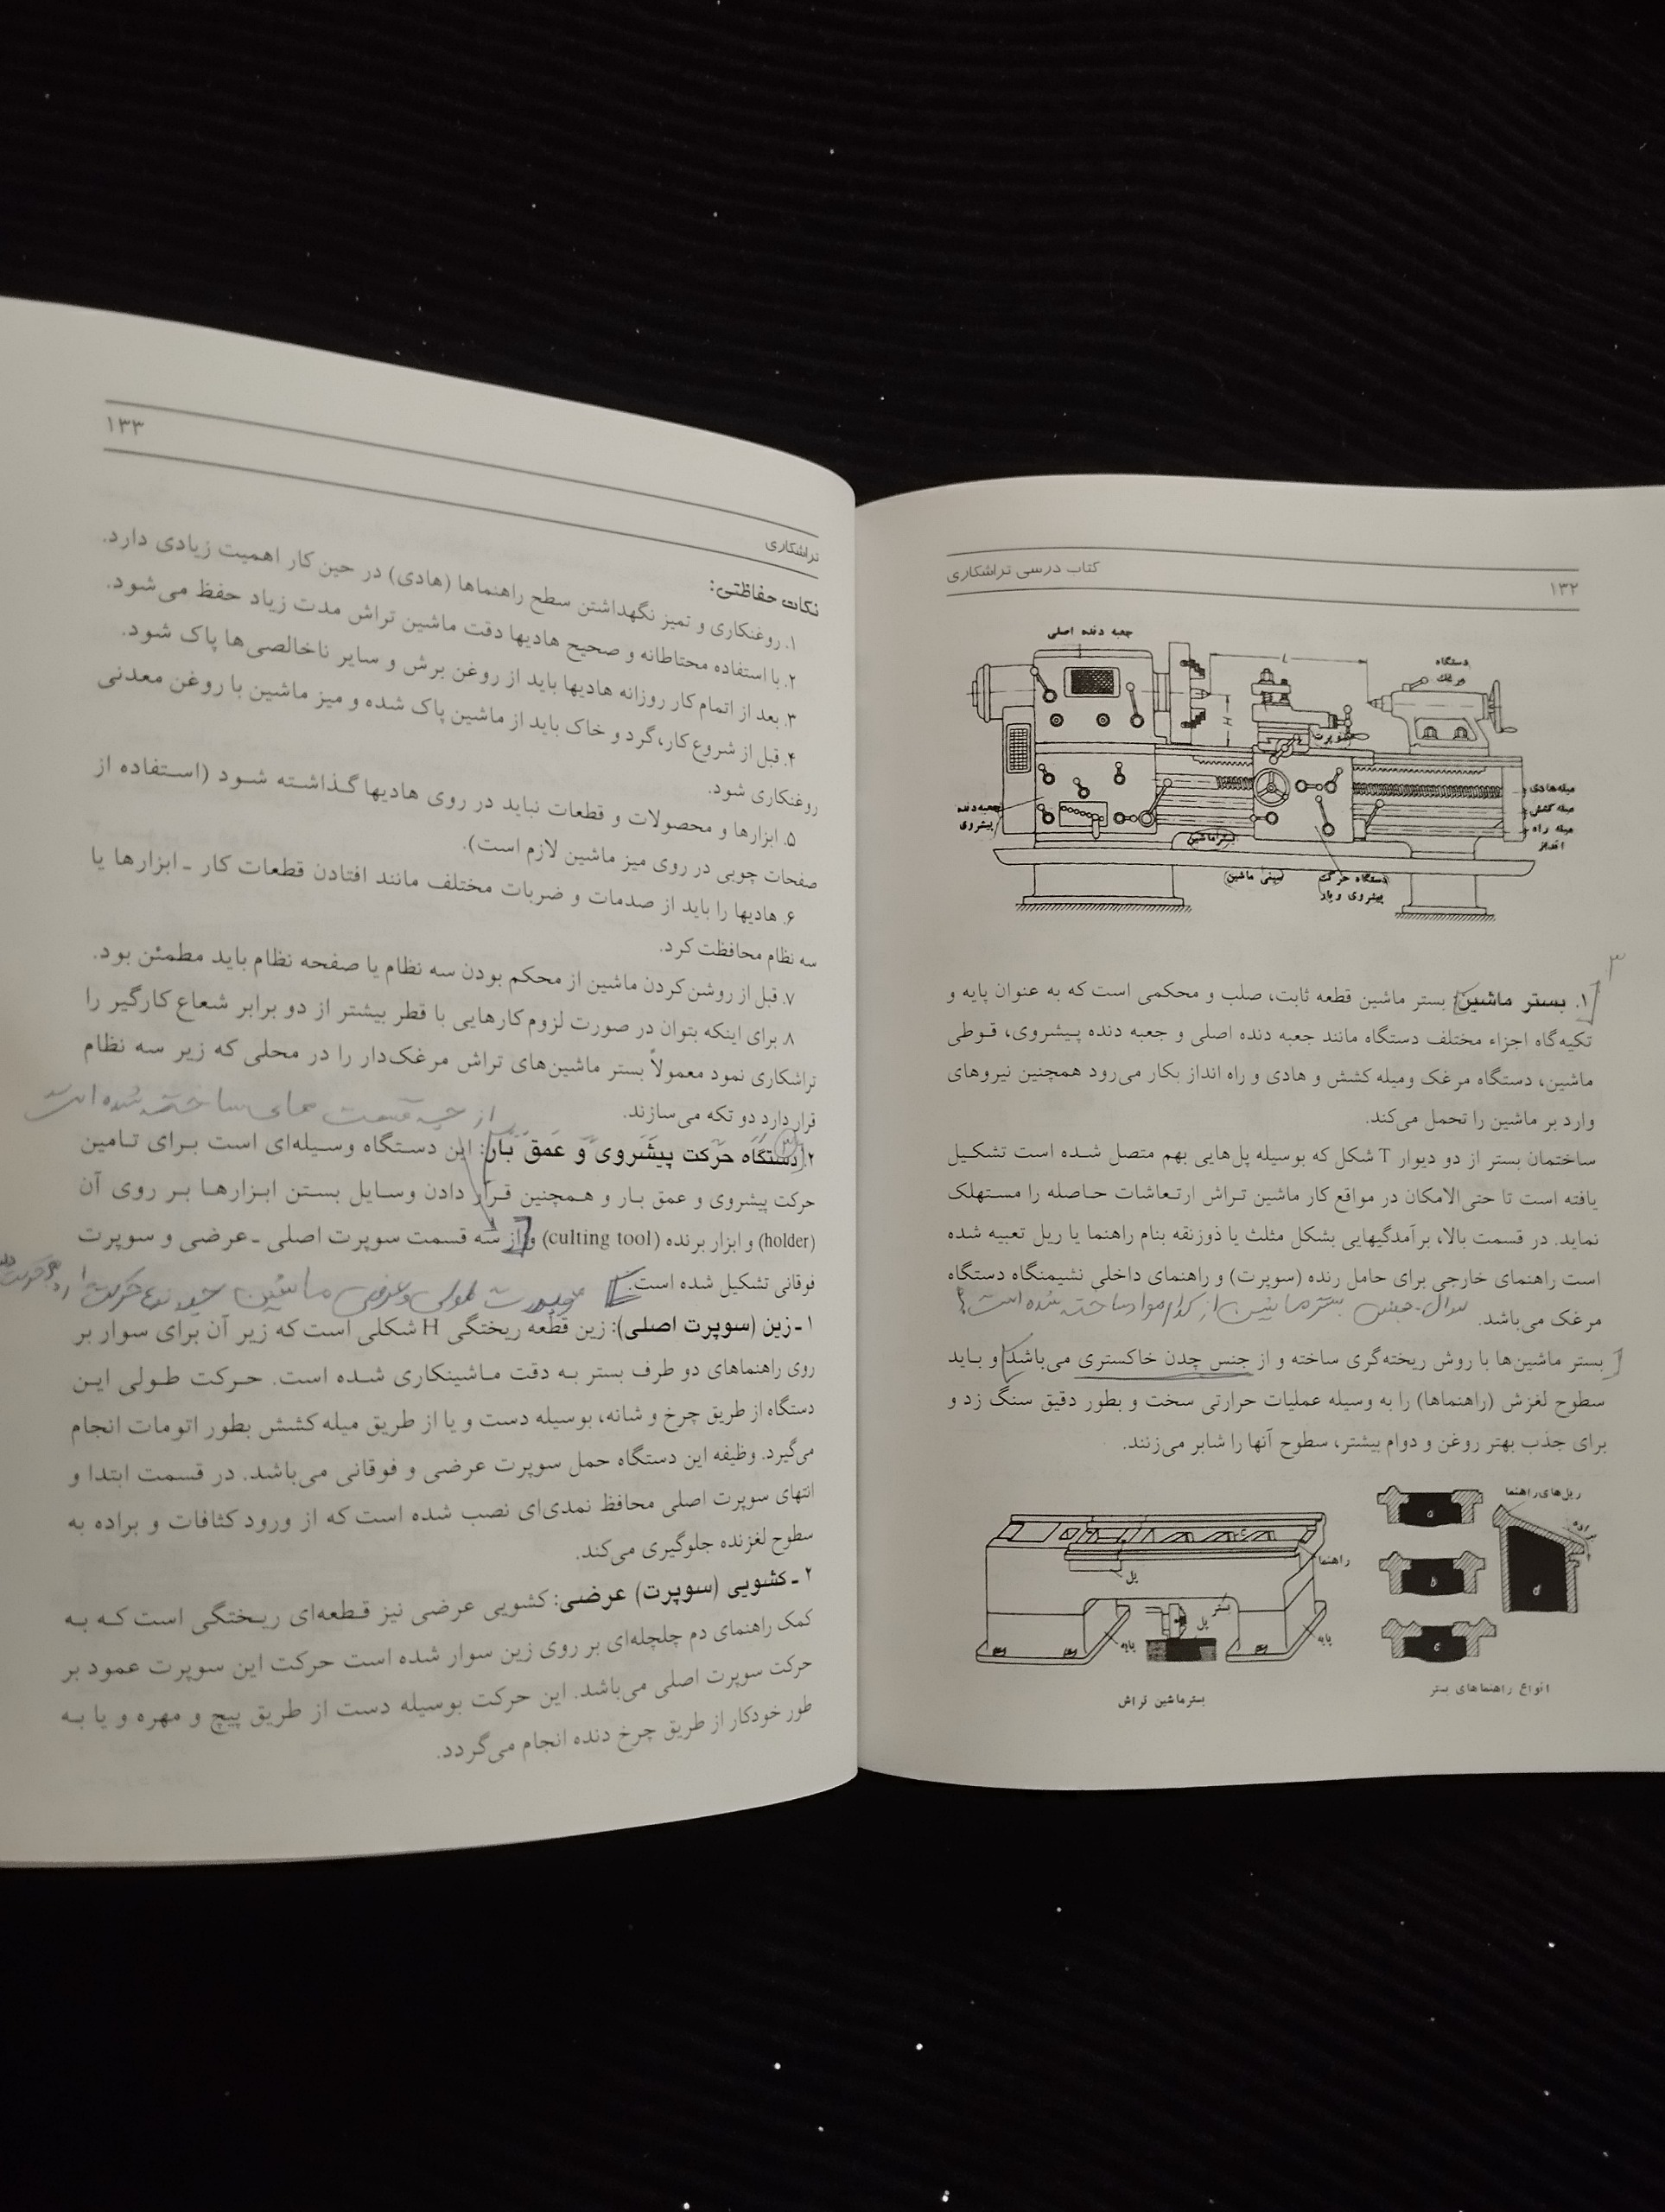 کتاب درسی تراشکاری
۱۳۲
جعبه دنده اصلی
دستگاه
مرغک
L
H
سوپرت
میله هادی
میله کشش
میله راه
انداز
جعبه دنده
پیشروی
بستر ماشین
سینی ماشین
دستگاه حرکت
پیشروی و بار
۳
۱. بستر ماشین: بستر ماشین قطعه ثابت، صلب و محکمی است که به عنوان پایه و
تکیه‌گاه اجزاء مختلف دستگاه مانند جعبه دنده اصلی و جعبه دنده پیشروی، قوطی
ماشین، دستگاه مرغک ومیله کشش و هادی و راه انداز بکار می‌رود همچنین نیروهای
وارد بر ماشین را تحمل می‌کند.
ساختمان بستر از دو دیوار T شکل که بوسیله پل‌هایی بهم متصل شده است تشکیل
یافته است تا حتی‌الامکان در مواقع کار ماشین تراش ارتعاشات حاصله را مستهلک
نماید. در قسمت بالا، برآمدگیهایی بشکل مثلث یا ذوزنقه بنام راهنما یا ریل تعبیه شده
است راهنمای خارجی برای حامل رنده (سوپرت) و راهنمای داخلی نشیمنگاه دستگاه
مرغک می‌باشد.
سوال - جنس بستر ماشین از کدام مواد ساخته شده است؟
بستر ماشین‌ها با روش ریخته‌گری ساخته و از جنس چدن خاکستری می‌باشد و باید
سطوح لغزش (راهنماها) را به وسیله عملیات حرارتی سخت و بطور دقیق سنگ زد و
برای جذب بهتر روغن و دوام بیشتر، سطوح آنها را شابر می‌زنند.
راهنما
پل
بستر
پل
پایه
پایه
بستر ماشین تراش
ریل‌های راهنما
براده
a
b
c
d
انواع راهنماهای بستر
۱۳۳
تراشکاری
نکات حفاظتی:
۱. روغنکاری و تمیز نگهداشتن سطح راهنماها (هادی) در حین کار اهمیت زیادی دارد.
۲. با استفاده محتاطانه و صحیح هادیها دقت ماشین تراش مدت زیاد حفظ می‌شود.
۳. بعد از اتمام کار روزانه هادیها باید از روغن برش و سایر ناخالصی‌ها پاک شود.
۴. قبل از شروع کار، گرد و خاک باید از ماشین پاک شده و میز ماشین با روغن معدنی
روغنکاری شود.
۵. ابزارها و محصولات و قطعات نباید در روی هادیها گذاشته شود (استفاده از
صفحات چوبی در روی میز ماشین لازم است).
۶. هادیها را باید از صدمات و ضربات مختلف مانند افتادن قطعات کار ـ ابزارها یا
سه نظام محافظت کرد.
۷. قبل از روشن کردن ماشین از محکم بودن سه نظام یا صفحه نظام باید مطمئن بود.
۸. برای اینکه بتوان در صورت لزوم کارهایی با قطر بیشتر از دو برابر شعاع کارگیر را
تراشکاری نمود معمولاً بستر ماشین‌های تراش مرغک‌دار را در محلی که زیر سه نظام
قرار دارد دو تکه می‌سازند.
از چه قسمت های ساخته شده است
۲. دستگاه حرکت پیشروی و عمق بار: این دستگاه وسیله‌ای است برای تامین
حرکت پیشروی و عمق بار و همچنین قرار دادن وسایل بستن ابزارها بر روی آن
(holder) و ابزار برنده (culting tool) و از سه قسمت سوپرت اصلی ـ عرضی و سوپرت
فوقانی تشکیل شده است.
طولی و عرضی ماشین
۱ ـ زین (سوپرت اصلی): زین قطعه ریختگی H شکلی است که زیر آن برای سوار بر
روی راهنماهای دو طرف بستر به دقت ماشینکاری شده است. حرکت طولی این
دستگاه از طریق چرخ و شانه، بوسیله دست و یا از طریق میله کشش بطور اتومات انجام
می‌گیرد. وظیفه این دستگاه حمل سوپرت عرضی و فوقانی می‌باشد. در قسمت ابتدا و
انتهای سوپرت اصلی محافظ نمدی‌ای نصب شده است که از ورود کثافات و براده به
سطوح لغزنده جلوگیری می‌کند.
۲ ـ کشویی (سوپرت) عرضی: کشویی عرضی نیز قطعه‌ای ریختگی است که به
کمک راهنمای دم چلچله‌ای بر روی زین سوار شده است حرکت این سوپرت عمود بر
حرکت سوپرت اصلی می‌باشد. این حرکت بوسیله دست از طریق پیچ و مهره و یا به
طور خودکار از طریق چرخ دنده انجام می‌گردد.